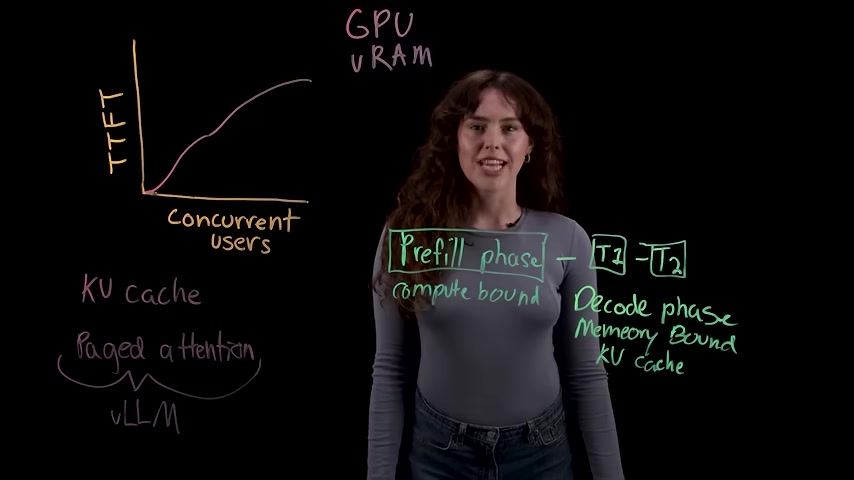 GPU
vRAM
TTFT
concurrent
users
KV cache
Paged attention
vLLM
Prefill phase – T1 – T2
compute bound
Decode phase
Memeory Bound
KV cache